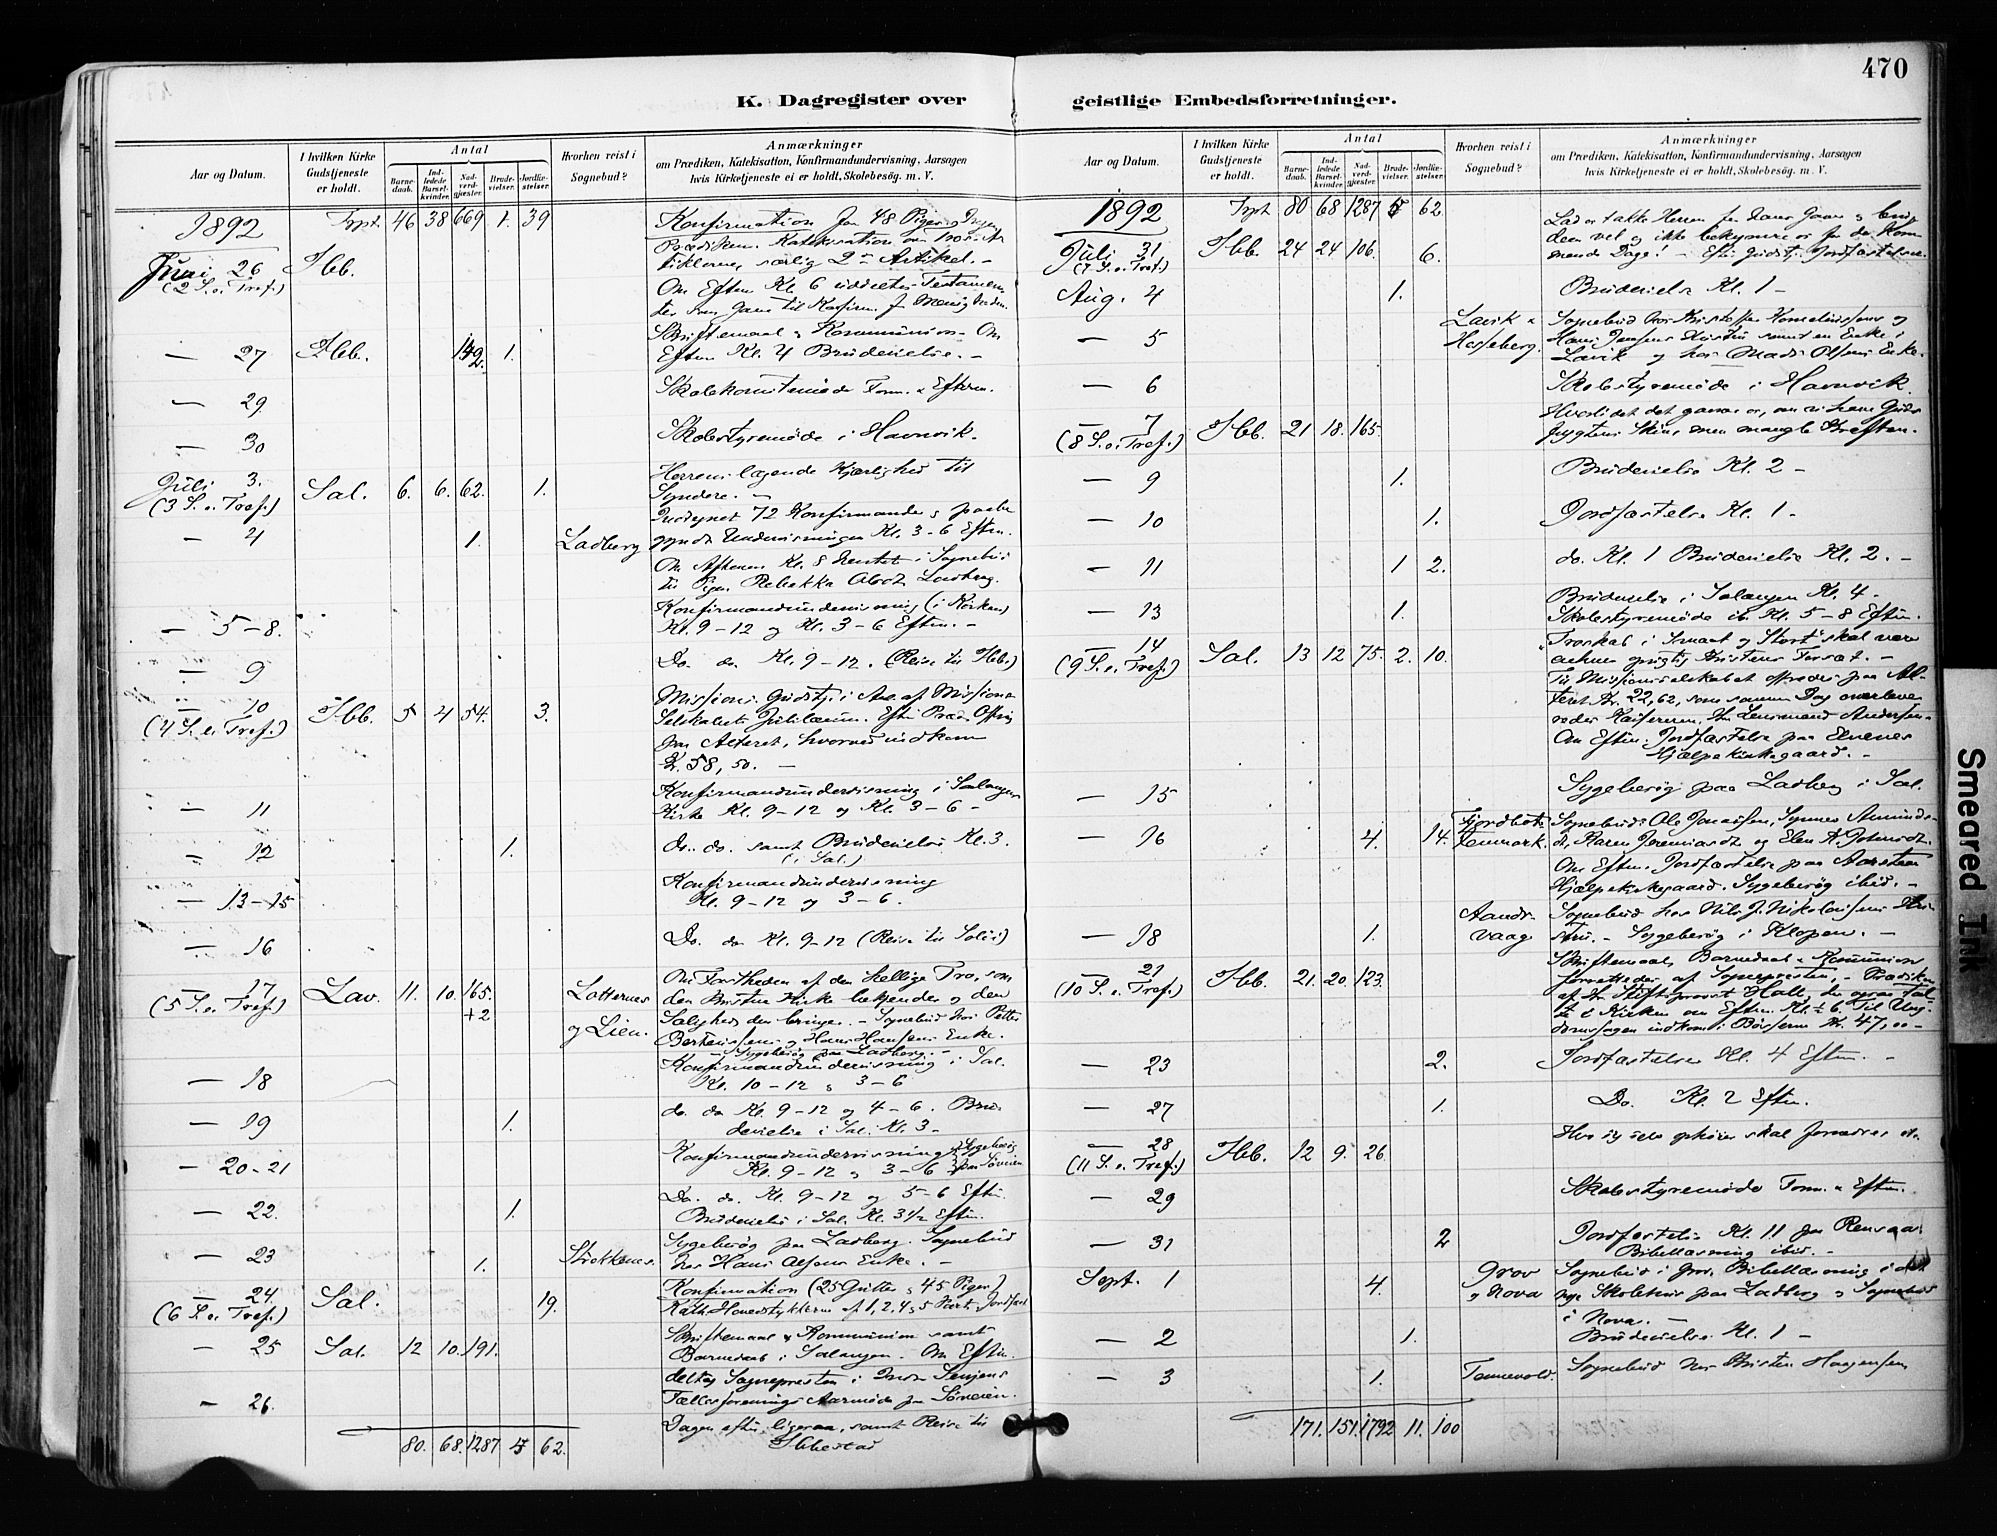 470
K. Dagregister over geistlige Embedsforretninger.
Aar og Datum. | I hvilken Kirke Gudstjeneste er holdt. | Antal | Barnedaab. | Indledede Barselkvinder. | Nadverdgjæster. | Brudevielser. | Jordfæstelser. | Hvorhen reist i Sognebud? | Anmærkninger om Prædiken, Katekisation, Konfirmandundervisning, Aarsagen hvis Kirketjeneste ei er holdt, Skolebesøg. m. V.
1892 Trpt. 46 38 669 1. 39 Konfirmation for 48 Piger
Prædiken. Katekisation om Tros-Ar
Juni 26 Ibb. tiklerne, særlig 2den Artikel. -
(2 S. e. Tref.) Om Eftm Kl. 6 uddeltes Testamen-
ter som Gave til Konfirm.
Skriftemaal & Kommunion. Om
— 27 Ibb. 142. 1. Eftm Kl. 4 Brudevielse. -
— 29 Skolekomitemøde Form. & Eftm.
— 30 Skolestyremøde i Havnvik.
Juli 3. Sal. 6. 6. 62. 1. Herrens søgende Kjærlighed til
(3 S. e. Tref.) Syndere. -
Indtegnet 72 Konfirmander & paabe-
— 4 1. Ladberg gyndt Undervisningen Kl. 3-6 Eftm.
Om Aftenen Kl. 8 hentet i Sognebud
til Pigen Rebekka Ladberg.
Konfirmandundervisning (i Kirken)
— 5-8. Kl. 9-12 og Kl. 3-6 Eftm. -
— 9 Do. do. Kl. 9-12. (Reise til Ibb.)
— 10 Ibb. 5 4 54. 3. Missions Gudstj. i Anl. af Missions-
(4 S. e. Tref.) Selskabets Jubilæum. Efter Præd. Offring
paa Alteret, hvorved indkom
Kr. 58,50. —
Konfirmandundervisning i Salangen
— 11 Kirke Kl. 9-12 og Kl. 3-6 -
— 12 1. Do. do. samt Brudevielse Kl. 3.
(i Sal.)
Konfirmandundervisning
— 13-15 Kl. 9-12 og 3-6.
— 16 Do. do Kl. 9-12 (Reise til
— 17 Lav. 11. 10. 165. Lotternes Om Fastheden af den hellige Tro, som
(5 S. e. Tref.) +2 og Lien. den kristne Kirke bekjender og den
Salighed den bringer. - Sognebud hos Petter
Berteussens & Hans Hansens Enke.
- Sygebesøg paa Ladberg. -
Konfirmandundervisning i Sal.
— 18 Kl. 10-12 & 3-6
— 19 1. do. do Kl. 9-12 og 4-6. Bru-
devielse i Sal. Kl. 3 -
— 20-21 Konfirmandundervisning Sygebesøg
Kl. 9-12 & 3-6 paa Søveien
— 22. 1. Do. do. Kl. 9-12 og 5-6 Eftm.
Brudevielse i Sal. Kl. 3½ Eftm.
— 23 1. Strokkenes. Sygebesøg paa Ladberg. Sognebud
hos Hans Olsens Enke. -
— 24. Sal. 19. Konfirmation (25 Gutter & 45 Piger)
(6 S. e. Tref.) Kath. Hovedstykkerne af 1, 2, 4 & 5 Part. Jordfæst
— 25 Sal. 12 10. 191. Skriftemaal & Kommunion samt
Barnedaab i Salangen. Om Eftm.
— 26. deltog Sognepresten i Indre Senjens
Fællesforenings Aarmøde paa Søveien.
Dagen efter ligesaa, samt Reise til
80. 68. 1287 5 62. Ibbestad
Aar og Datum. | I hvilken Kirke Gudstjeneste er holdt. | Antal | Barnedaab. | Indledede Barselkvinder. | Nadverdgjæster. | Brudevielser. | Jordfæstelser. | Hvorhen reist i Sognebud? | Anmærkninger om Prædiken, Katekisation, Konfirmandundervisning, Aarsagen hvis Kirketjeneste ei er holdt, Skolebesøg. m. V.
1892 Trpt 80 68 1287 5 62. Lad os takke Herren for hans Gaver & bruge
Juli 31 Ibb. 24 24 106. 6. dem vel og ikke bekymre os for de kom-
(7 S. e. Tref.) mende Dage! - Efter Gudstj. Jordfæstelse.
Aug. 4 1. Brudevielse Kl. 1 -
— 5 Lavik & Hasseberg. Sognebud hos Kristoffer Kornelinssens og
Hans Jensens samt en Enke,
Lavik og hos Mads Olsens Enke.
— 6 Skolestyremøde i Havnvik
— 7 Ibb. 21 18. 165. Hvorlidet det gavner os, om vi have Guds
(8 S. e. Tref.) frygtens Skin, men mangle Kraften.
— 9 1. Brudevielse Kl. 2 -
— 10 1. Jordfæstelse Kl. 1 -
— 11 1 2. do. Kl. 1 Brudevielse Kl. 2. -
— 13 1. Brudevielse i Salangen Kl. 4 -
Skolestyremøde ib. Kl. 5-8 Eftm.
— 14 Sal. 13 12 75. 2. 10. "Troskab i Smaat og Stort" skal være
(9 S. e. Tref.) enhver oprigtig Kristens Forsæt. -
Til Missionsselskabet offredes paa Al-
teret Kr. 22,62, som samme Dag overleve-
redes Kassereren, Hr. Lensmand Andersen.
Om Eftm. Jordfæstelse paa Elvenes
Hjælpekirkegaard. -
— 15 Sygebesøg paa Ladberg i Sal.
— 16 4. 14. Fjordbotn Tennmark. Sognebud: Ole Jonassen, Synnev Amunds-
dt, Karen Jeremiasdt og Elen K. Johnsdt.
Om Eftm. Jordfæstelse paa Aarsteen
Hjælpekirkegaard. Sygebesøg ibid. -
— 18 1. Aandr-vaag Sognebud hos Nils J. Nikolaisens Hu-
stru. - Sygebesøg i Klopen. -
— 21 Ibb. 21. 20. 123. Skriftemaal, Barnedaab & Kommunion
(10 S. e. Tref.) forrettedes af Sognepresten, - Prædiken
af Hr. Stiftsprovst Hall, der ogsaa tal-
te i Kirken om Eftm. Kl. 6. Til Ung-
domssagen indkom i Bøsserne Kr. 47,00 -
— 23 2. Jordfæstelse Kl. 4 Eftm. -
— 27 1. Do. Kl. 2 Eftm.
— 28 Ibb. 12 9. 26. Hvo sig selv ophøier skal fornedres etc.
(11 S. e. Tref.)
— 29 Skolestyremøde Form. & Eftm.
— 31 2 Jordfæstelse Kl. 11 paa Rensaa.
Bibellæsning ibid. -
Sept. 1 4. Grov & Nova Sognebud i Grov. Bibellæsning i det
nye Skolehus paa Ladberg & Sognebud
i Nova. -
— 2 1. Brudevielse Kl. 1 -
— 3 1. Tonnevold. Sognebud hos Kristen Haagensen
171. 151. 1792 11. 100
Smeared Ink